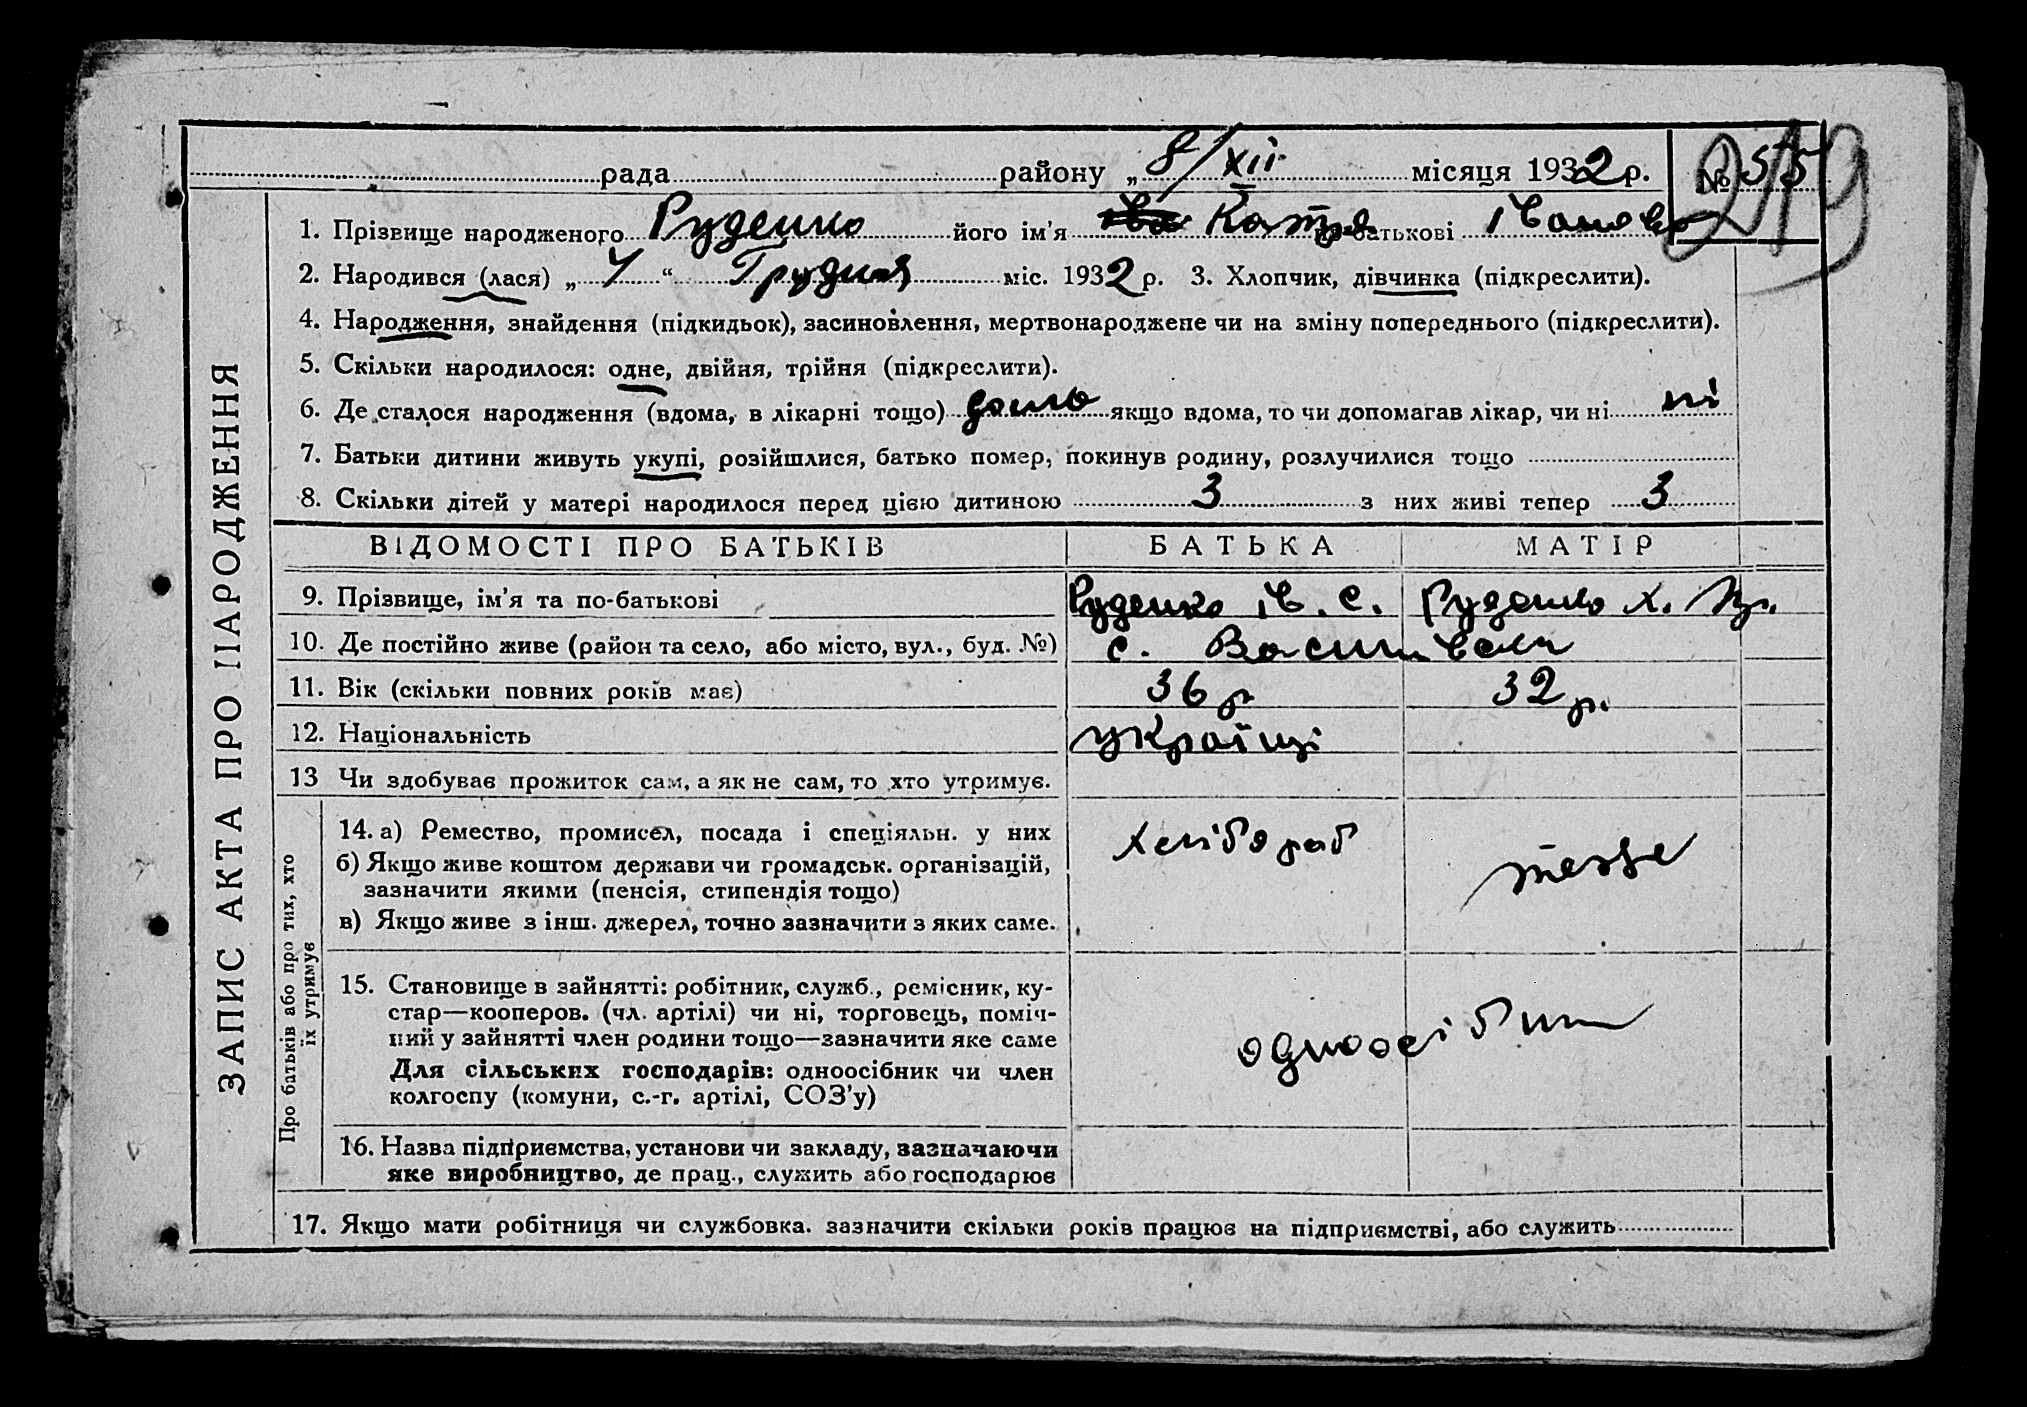 рада района „ 8/XII місяця 1932 р. № 55
219
1. Прізвище народженого Руденко його ім'я Катря по-батькові Іванов
2. Народився (лася) „ 4 “ Грудня міс. 1932 р. 3. Хлопчик, дівчинка (підкреслити).
4. Народження, знайдення (підкидьок), засиновлення, мертвонароджене чи на зміну попереднього (підкреслити).
5. Скільки народилося: одне, двійня, трійня (підкреслити).
6. Де сталося народження (вдома, в лікарні тощо) дома якщо вдома, то чи допомагав лікар, чи ні ні
7. Батьки дитини живуть укупі, розійшлися, батько помер, покинув родину, розлучилися тощо
8. Скільки дітей у матері народилося перед цією дитиною 3 з них живі тепер 3
ЗАПИС АКТА ПРО НАРОДЖЕННЯ
ВІДОМОСТІ ПРО БАТЬКІВ БАТЬКА МАТІР
9. Прізвище, ім'я та по-батькові Руденко Ів. С. Руденко Х.
10. Де постійно живе (район та село, або місто, вул., буд. №) с. Василівка
11. Вік (скільки повних років має) 36 р. 32 р.
12. Національність українці
13 Чи здобуває прожиток сам, а як не сам, то хто утримує.
Про батьків або про тих, хто
їх утримує
14. а) Ремество, промисел, посада і спеціяльн. у них хлібороб теж
б) Якщо живе коштом держави чи громадськ. організацій,
зазначити якими (пенсія, стипендія тощо)
в) Якщо живе з інш. джерел, точно зазначити з яких саме.
15. Становище в зайнятті: робітник, служб., ремісник, ку-
стар—кооперов. (чл. артілі) чи ні, торговець, поміч-
ний у зайнятті член родини тощо—зазначити яке саме
одноосібник
Для сільських господарів: одноосібник чи член
колгоспу (комуни, с.-г. артілі, СОЗ'у)
16. Назва підприємства, установи чи закладу, зазначаючи
яке виробництво, де прац., служить або господарює
17. Якщо мати робітниця чи службовка. зазначити скільки років працює на підприємстві, або служить